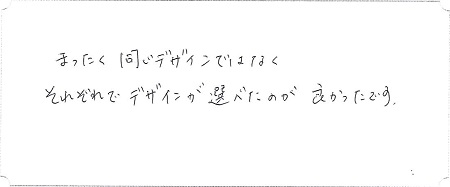 まったく 同じデザインではなく
それぞれで デザインが 選べたのが 良かったです.